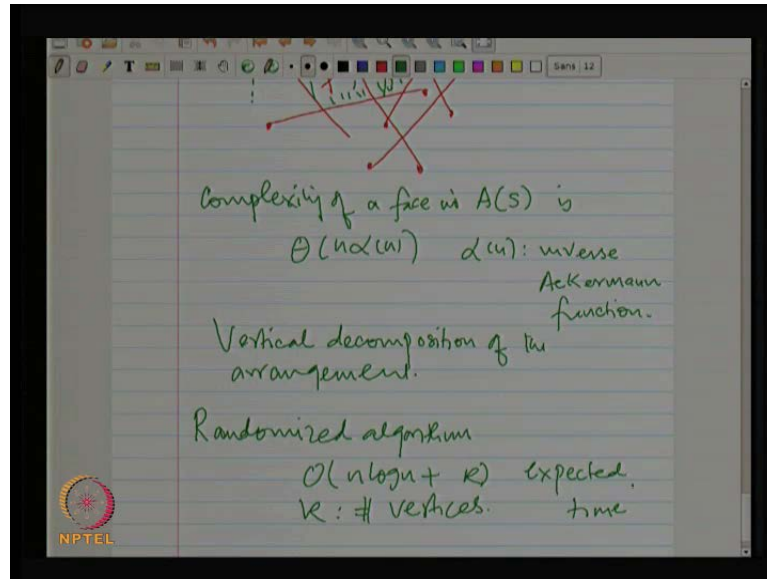 Sans 12
Complexity of a face in A(S) is
Θ(nα(n)) α(n): inverse
Ackermann
function.
Vertical decomposition of the
arrangement.
Randomized algorithm
O(nlogn + k) expected.
k: # vertices. time
NPTEL